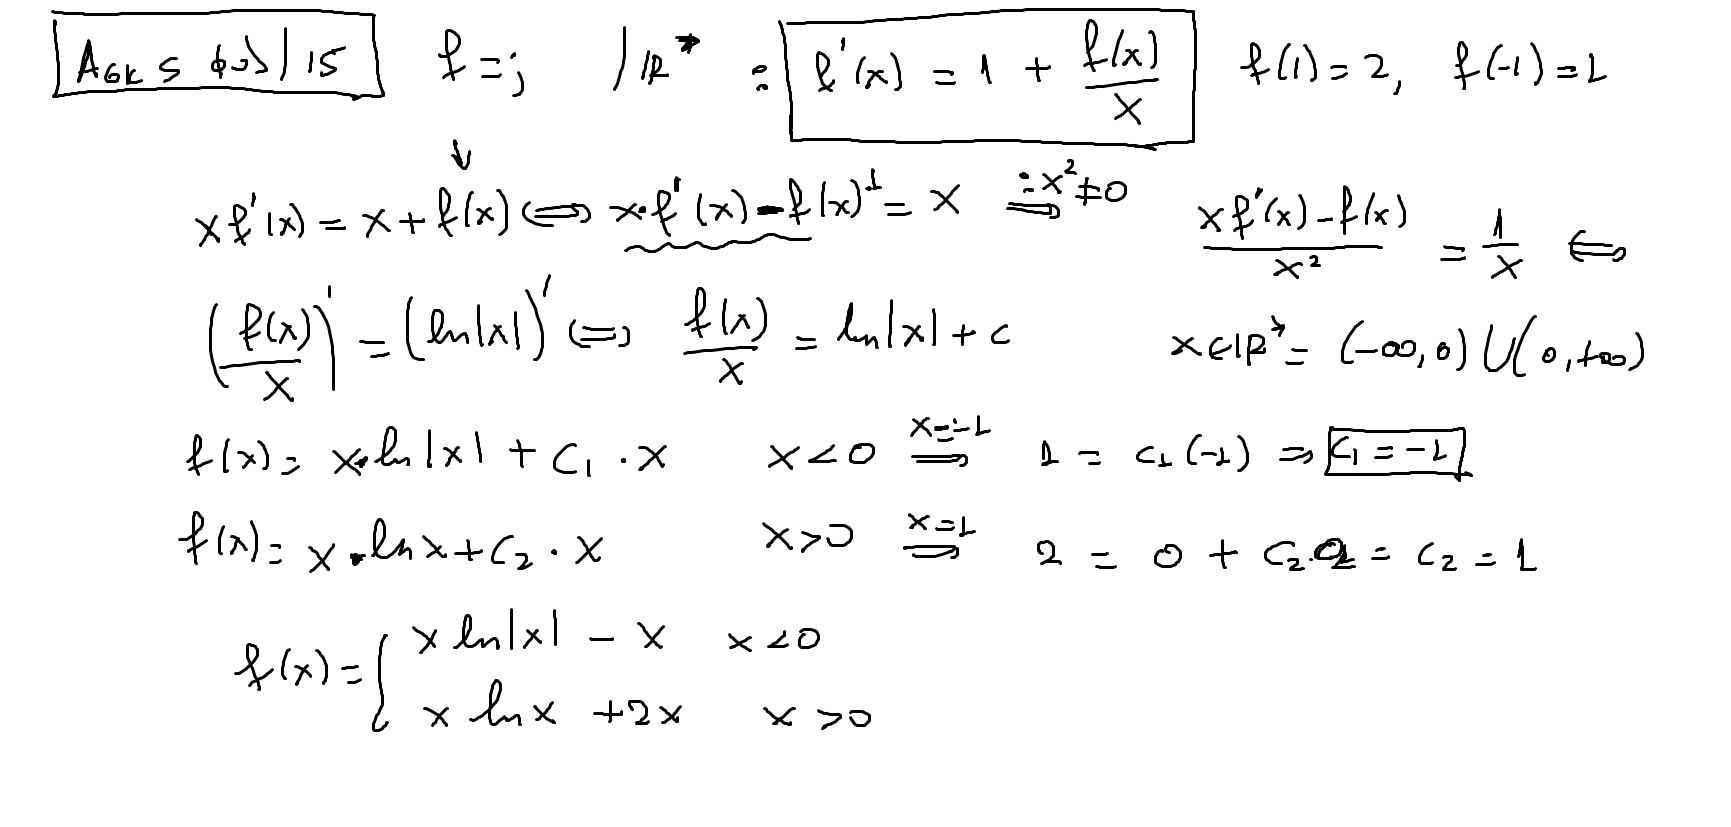 Ασκ 5 φυλ 15 f = ; / ℝ* : f'(x) = 1 + f(x)/x f(1) = 2, f(-1) = 1
xf'(x) = x + f(x) ⟺ x·f'(x) - f(x)·1 = x :x²≠0 ⟹ (xf'(x) - f(x))/x² = 1/x ⟺
(f(x)/x)' = (ln|x|)' ⟺ f(x)/x = ln|x| + c x ∈ ℝ* = (-∞, 0) ∪ (0, +∞)
f(x) = x·ln|x| + c₁·x x < 0 x=-1 ⟹ 1 = c₁(-1) ⟹ c₁ = -1
f(x) = x·lnx + c₂·x x > 0 x=1 ⟹ 2 = 0 + c₂· = c₂ = 1
f(x) = { x ln|x| - x x < 0
x lnx + 2x x > 0